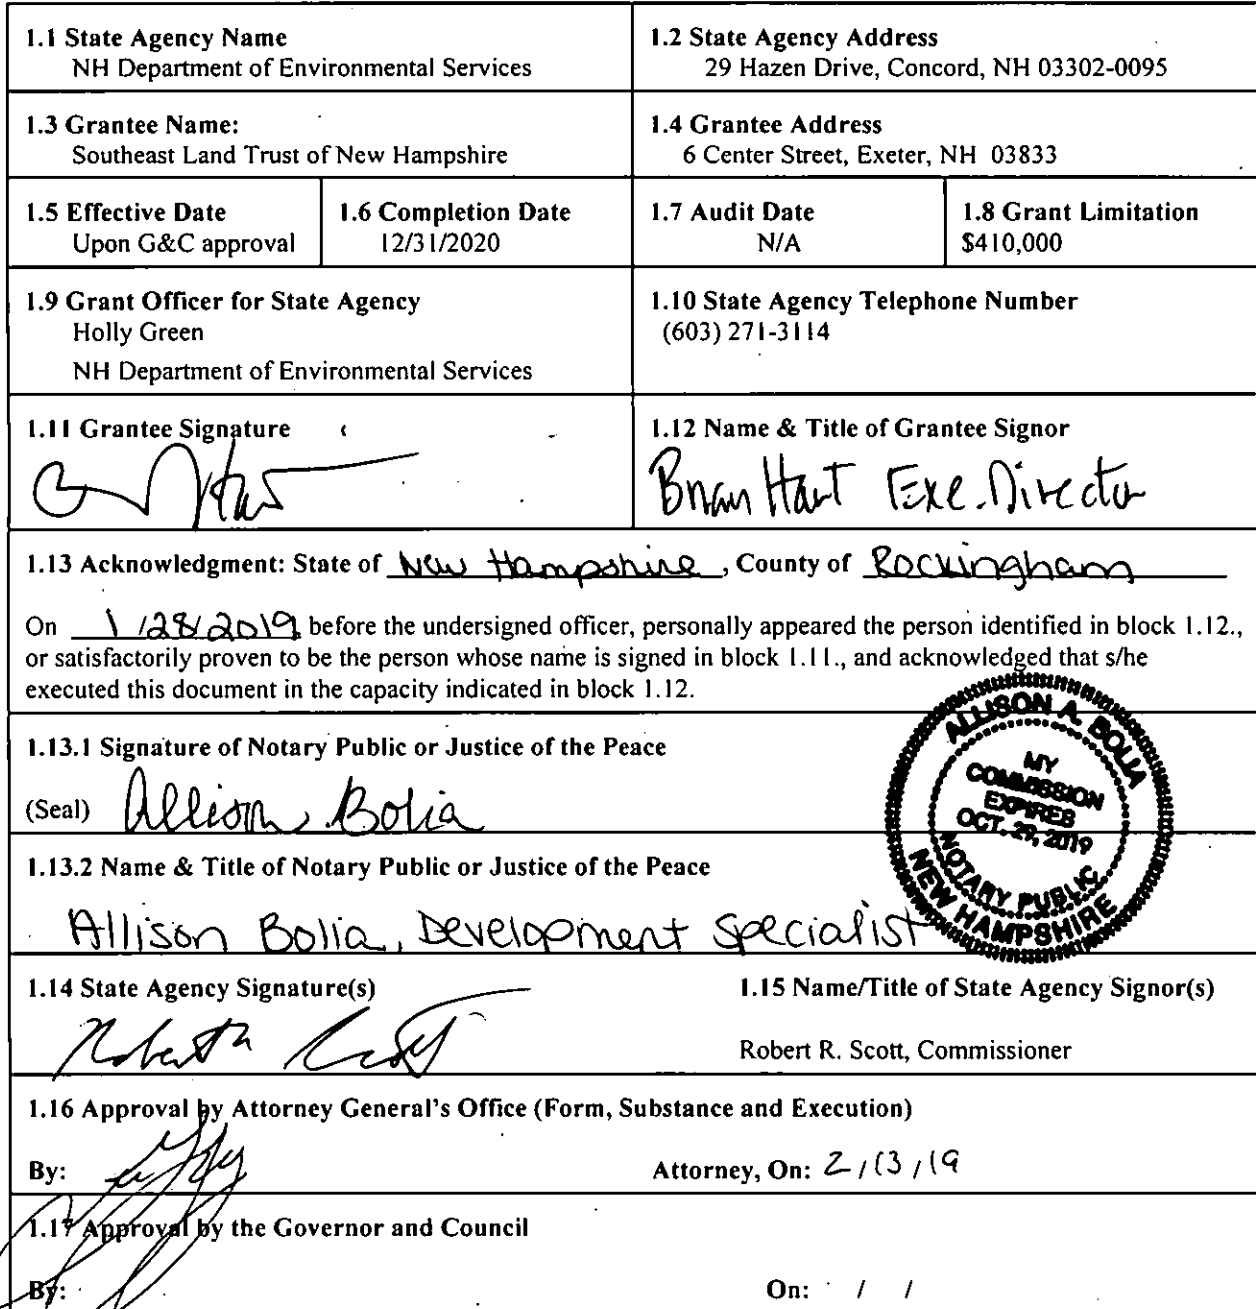 1.1 State Agency Name
NH Department of Environmental Services
1.2 State Agency Address
29 Hazen Drive, Concord, NH 03302-0095
1.3 Grantee Name:
Southeast Land Trust of New Hampshire
1.4 Grantee Address
6 Center Street, Exeter, NH 03833
1.5 Effective Date
Upon G&C approval
1.6 Completion Date
12/31/2020
1.7 Audit Date
N/A
1.8 Grant Limitation
$410,000
1.9 Grant Officer for State Agency
Holly Green
NH Department of Environmental Services
1.10 State Agency Telephone Number
(603) 271-3114
1.11 Grantee Signature
1.12 Name & Title of Grantee Signor
Brian Hart Exe. Director
1.13 Acknowledgment: State of New Hampshire, County of Rockingham
On 1/28/2019 before the undersigned officer, personally appeared the person identified in block 1.12.,
or satisfactorily proven to be the person whose name is signed in block 1.11., and acknowledged that s/he
executed this document in the capacity indicated in block 1.12.
1.13.1 Signature of Notary Public or Justice of the Peace
(Seal) Allison Bolia
ALLISON A. BOLIA
MY
COMMISSION
EXPIRES
OCT. 29, 2019
NOTARY PUBLIC
NEW HAMPSHIRE
1.13.2 Name & Title of Notary Public or Justice of the Peace
Allison Bolia, Development Specialist
1.14 State Agency Signature(s)
1.15 Name/Title of State Agency Signor(s)
Robert R. Scott, Commissioner
1.16 Approval by Attorney General's Office (Form, Substance and Execution)
By:
Attorney, On: 2/13/19
1.17 Approval by the Governor and Council
By:
On: / /